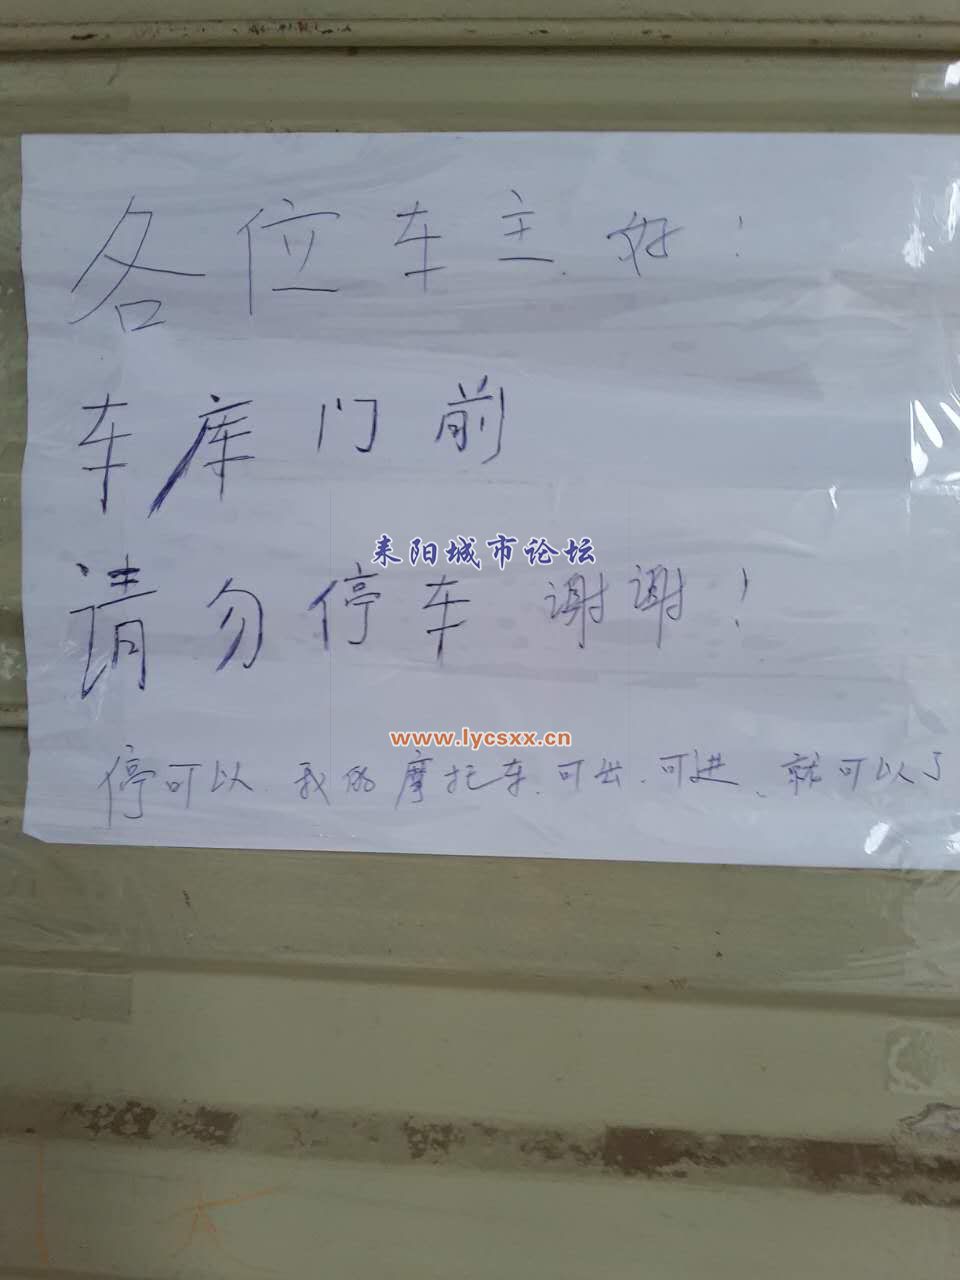 各位车主好！
车库门前
耒阳城市论坛
请勿停车 谢谢！
www.lycsxx.cn
停可以、我的摩托车、可出、可进、就可以了